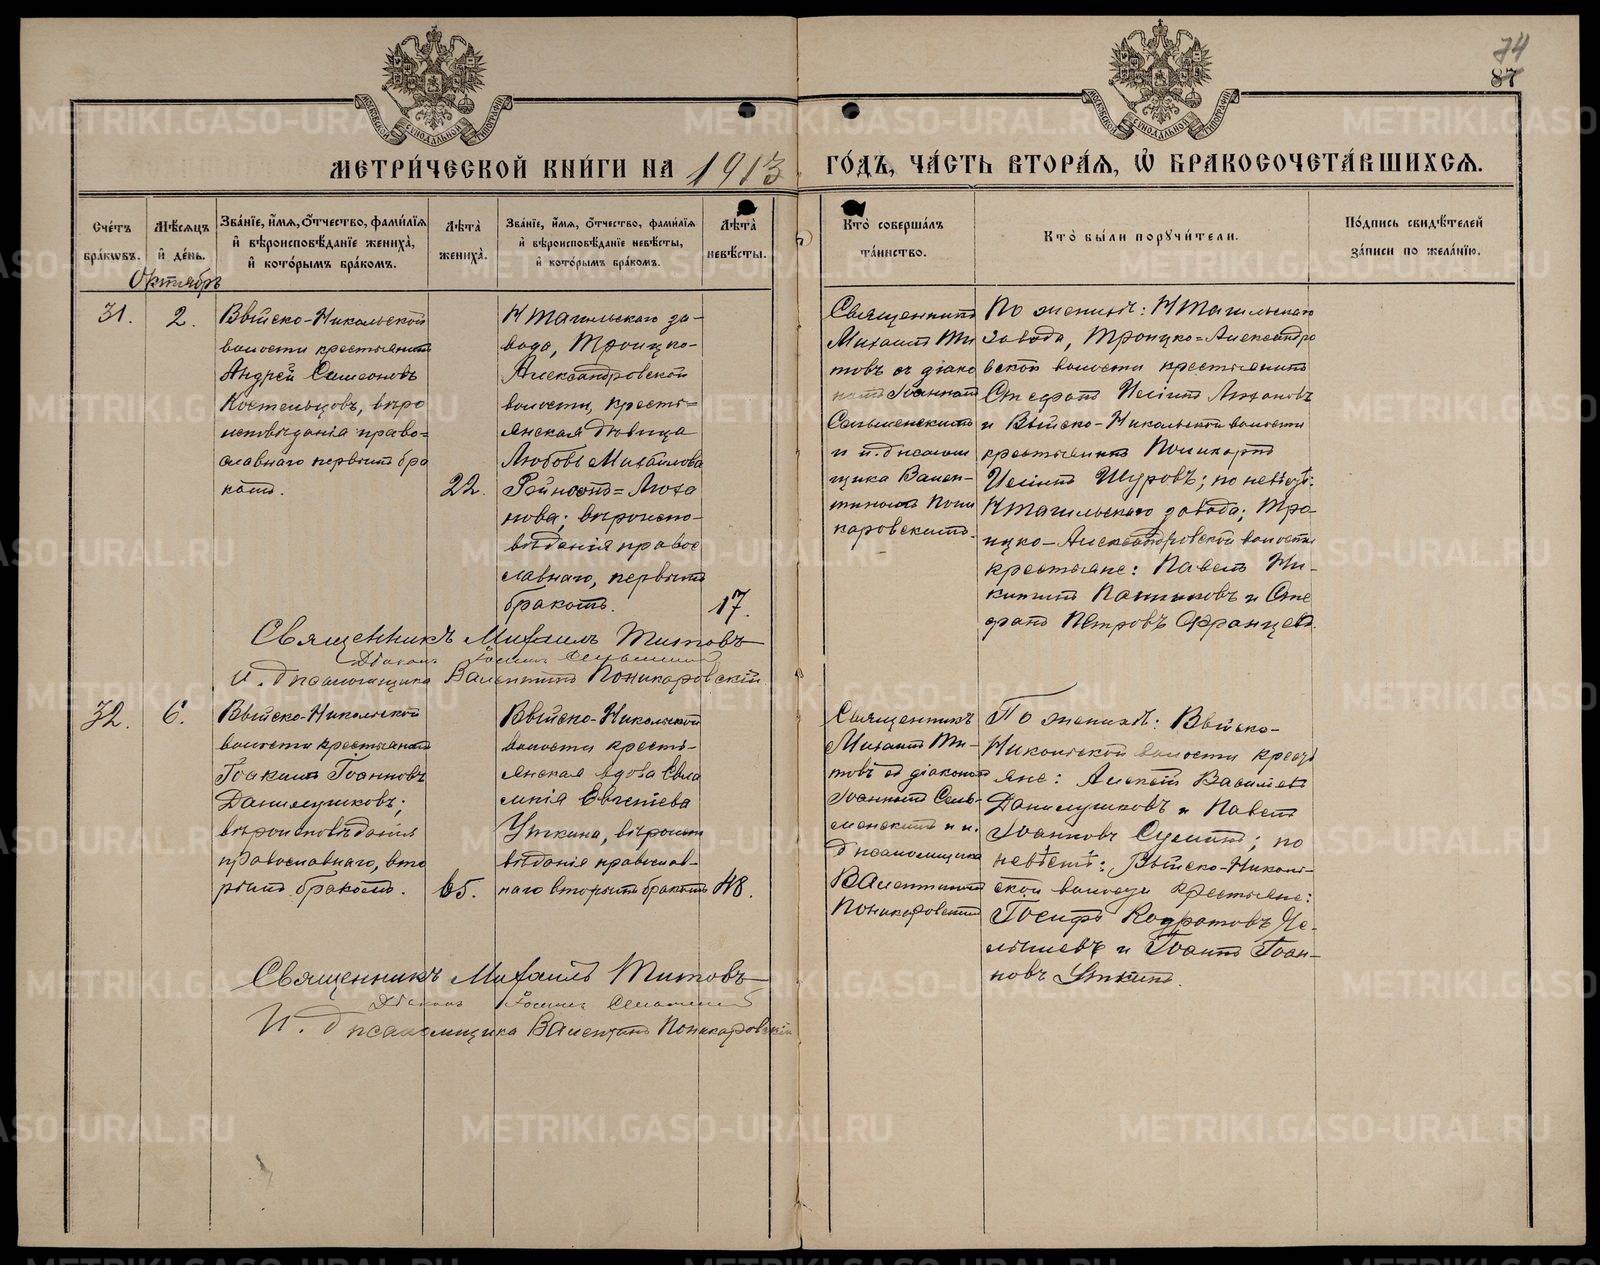 74
87
МЕТРИ́ЧЕСКОЙ КНИ́ГИ НА 1913 ГО́ДЪ, ЧА́СТЬ ВТОРА́Я, Ѽ БРАКОСОЧЕТА́ВШИХСЯ.
Сче́тъ бра́кѡвъ.
Мѣ́сяцъ и҆ де́нь.
Октябрь
Зва́нїе, и҆́мя, ѻ҆́тчество, фами́лїя
и҆ вѣроисповѣ́данїе жениха̀,
и҆ кото́рымъ бра́комъ.
Лѣта̀ жениха̀.
Зва́нїе, и҆́мя, ѻ҆́тчество, фами́лїя
и҆ вѣроисповѣ́данїе невѣ́сты,
и҆ кото́рымъ бра́комъ.
Лѣта̀ невѣ́сты.
Кто̀ соверша́лъ
та́инство.
Кто̀ бы́ли порꙋчи́тели.
По́дпись свидѣ́телей
за́писи по жела́нїю.
31.
2.
Выйско-Никольской
волости крестьянинъ
Андрей Симеоновъ
Костельцовъ, вѣро
исповѣданія право=
славнаго первымъ бра
комъ.
22.
Н Тагильскаго за-
вода, Троицко-
Александровской
волости, кресть=
янская дѣвица
Любовь Михаилова
Лоха
нова; вѣроиспо-
вѣданія правос
лавнаго, первымъ
бракомъ.
17.
Священникъ
Михаилъ Ти
товъ съ діако
номъ Іоанномъ
Сельменскимъ
и и. д. псалом
щика Вален-
тиномъ Пони
каровскимъ.
По женихѣ: Н Тагильскаго
завода, Троицко=Александро
вской волости крестьянинъ
Стефанъ Лохановъ
и Выйско-Никольской волости
крестьянинъ Поликарпъ
Шуровъ; по невѣстѣ:
Н Тагильскаго завода; Тро-
ицко-Александровской волости
крестьяне: Павелъ Ни-
китинъ и Сте
фанъ Петровъ Францевъ.
Священникъ Михаилъ Титовъ
Діаконъ Іоаннъ Сельменскій
И. д. псаломщика Валентинъ Поникаровскій.
32.
6.
Выйско-Никольской
волости крестьянинъ
Іоакимъ Іоанновъ
Данилушковъ;
вѣроисповѣданія
православнаго, вто
рымъ бракомъ.
65.
Выйско-Никольской
волости кресть-
янская вдова Евла
мпія Евгеніева
Уткина, вѣроиспо
вѣданія православ-
наго вторымъ бракомъ
48.
Священникъ
Михаилъ Ти-
товъ съ діакономъ
Іоанномъ Сель-
менскимъ и и.
д псаломщика
Валентиномъ
Поникаровскимъ
По женихѣ: Выйско-
Никольской волости кресть
яне: Алексѣй Васильевъ
Данилушковъ и Павелъ
Іоанновъ; по
невѣстѣ: Выйско-Николь-
ской волости крестьяне:
Іосифъ Кодратовъ Че-
лышевъ и Іоаннъ Іоан-
новъ Уткинъ.
Священникъ Михаилъ Титовъ
Діаконъ Іоаннъ Сельменскій
И. д псаломщика Валентинъ Поникаровскій